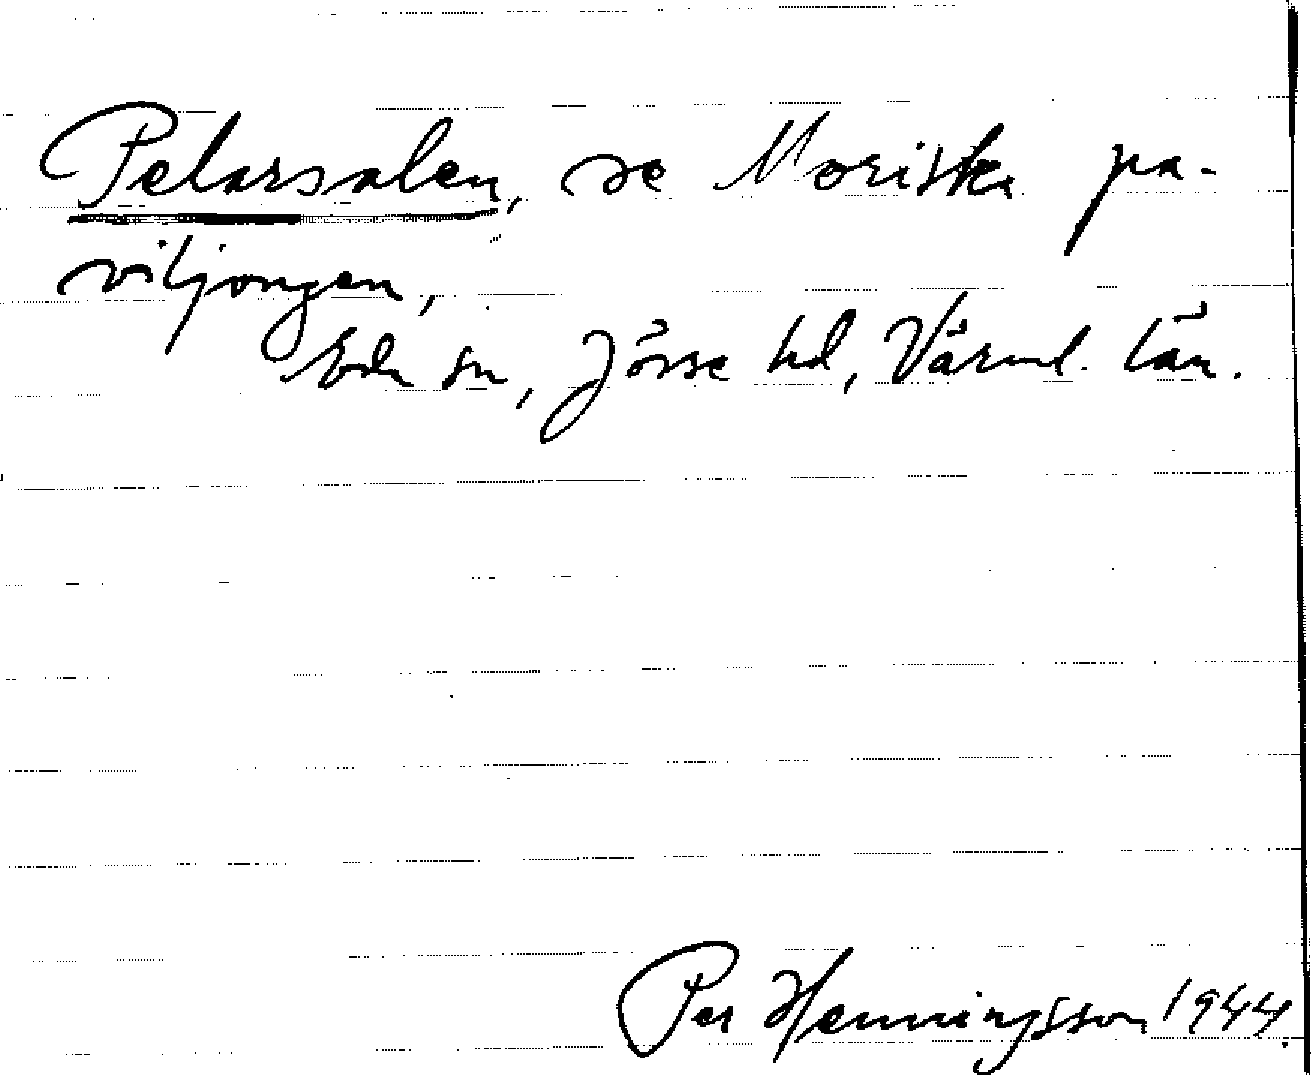 Pelarsalen, se Moriska pa-
viljongen,
Eda sn, Jösse hd, Värml. län.
Per Henningsson 1944.